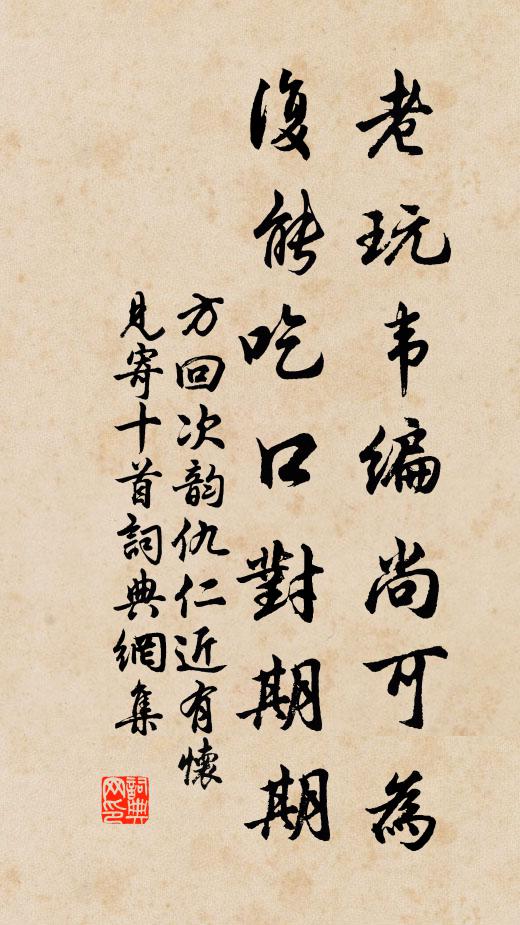 老玩韦编尚可為
復能吃口對期期
方回次韵仇仁近有懷
見寄十首詞典網集
詞典网印